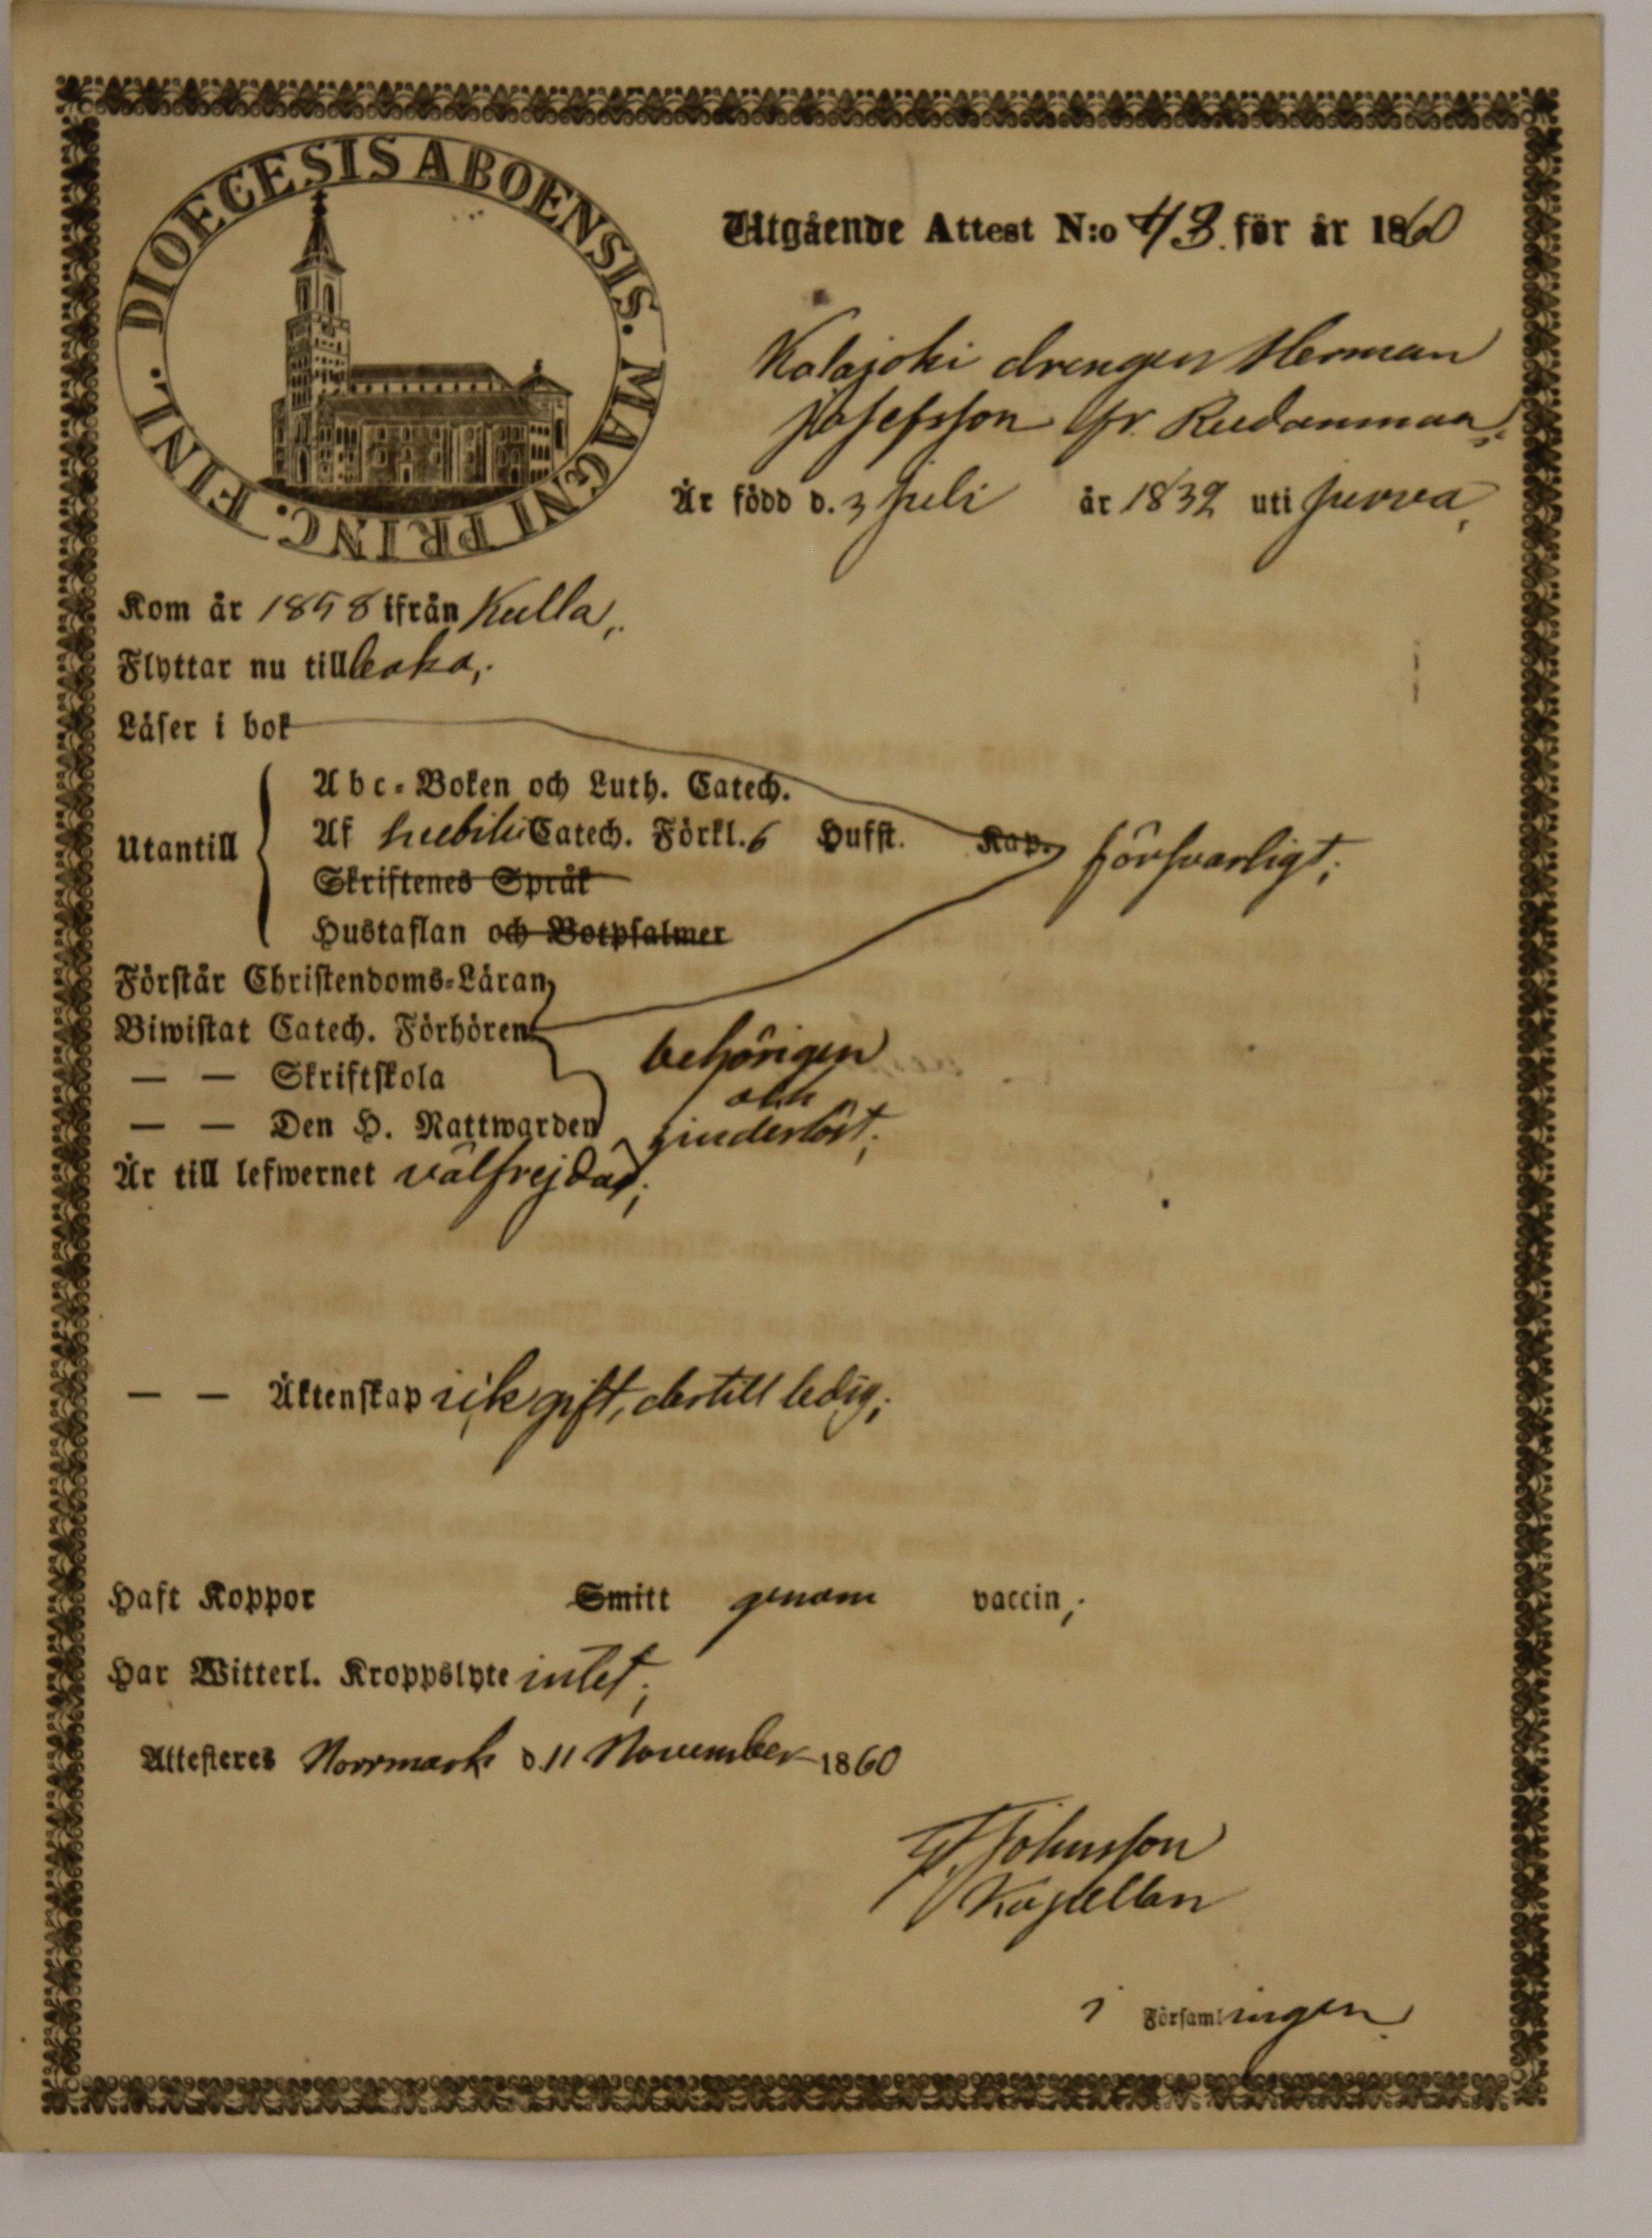 DIOECESIS ABOENSIS. MAGNI PRINC. FINL.
Utgående Attest N:o 43. för år 1860
Kolajoki drengen Herman
Josefsson fr. Rudanmaa,
År född d. 3 Juli år 1832 uti Jurva,
Kom år 1858 ifrån Kulla,
Flyttar nu till
Läser i bok
Abc-Boken och Luth. Catech.
Utantill
Af Catech. Förkl. 6 Hufst. Kap. försvarligt;
Skriftenes Språk
Hustaflan och Botpsalmer
Förstår Christendoms-Läran,
Biwistat Catech. Förhören
behörigen
— — Skriftskola
och
— — Den H. Nattwarden
hinderlöst;
Är till lefwernet välfrejdad;
— — Äktenskap ick gift, dertill ledig;
Haft Koppor Smitt genom vaccin,
Har Witterl. Kroppslyte intet;
Attesteres Norrmark d. 11 November 1860
Johnsson
Kapellan
i Församlingen